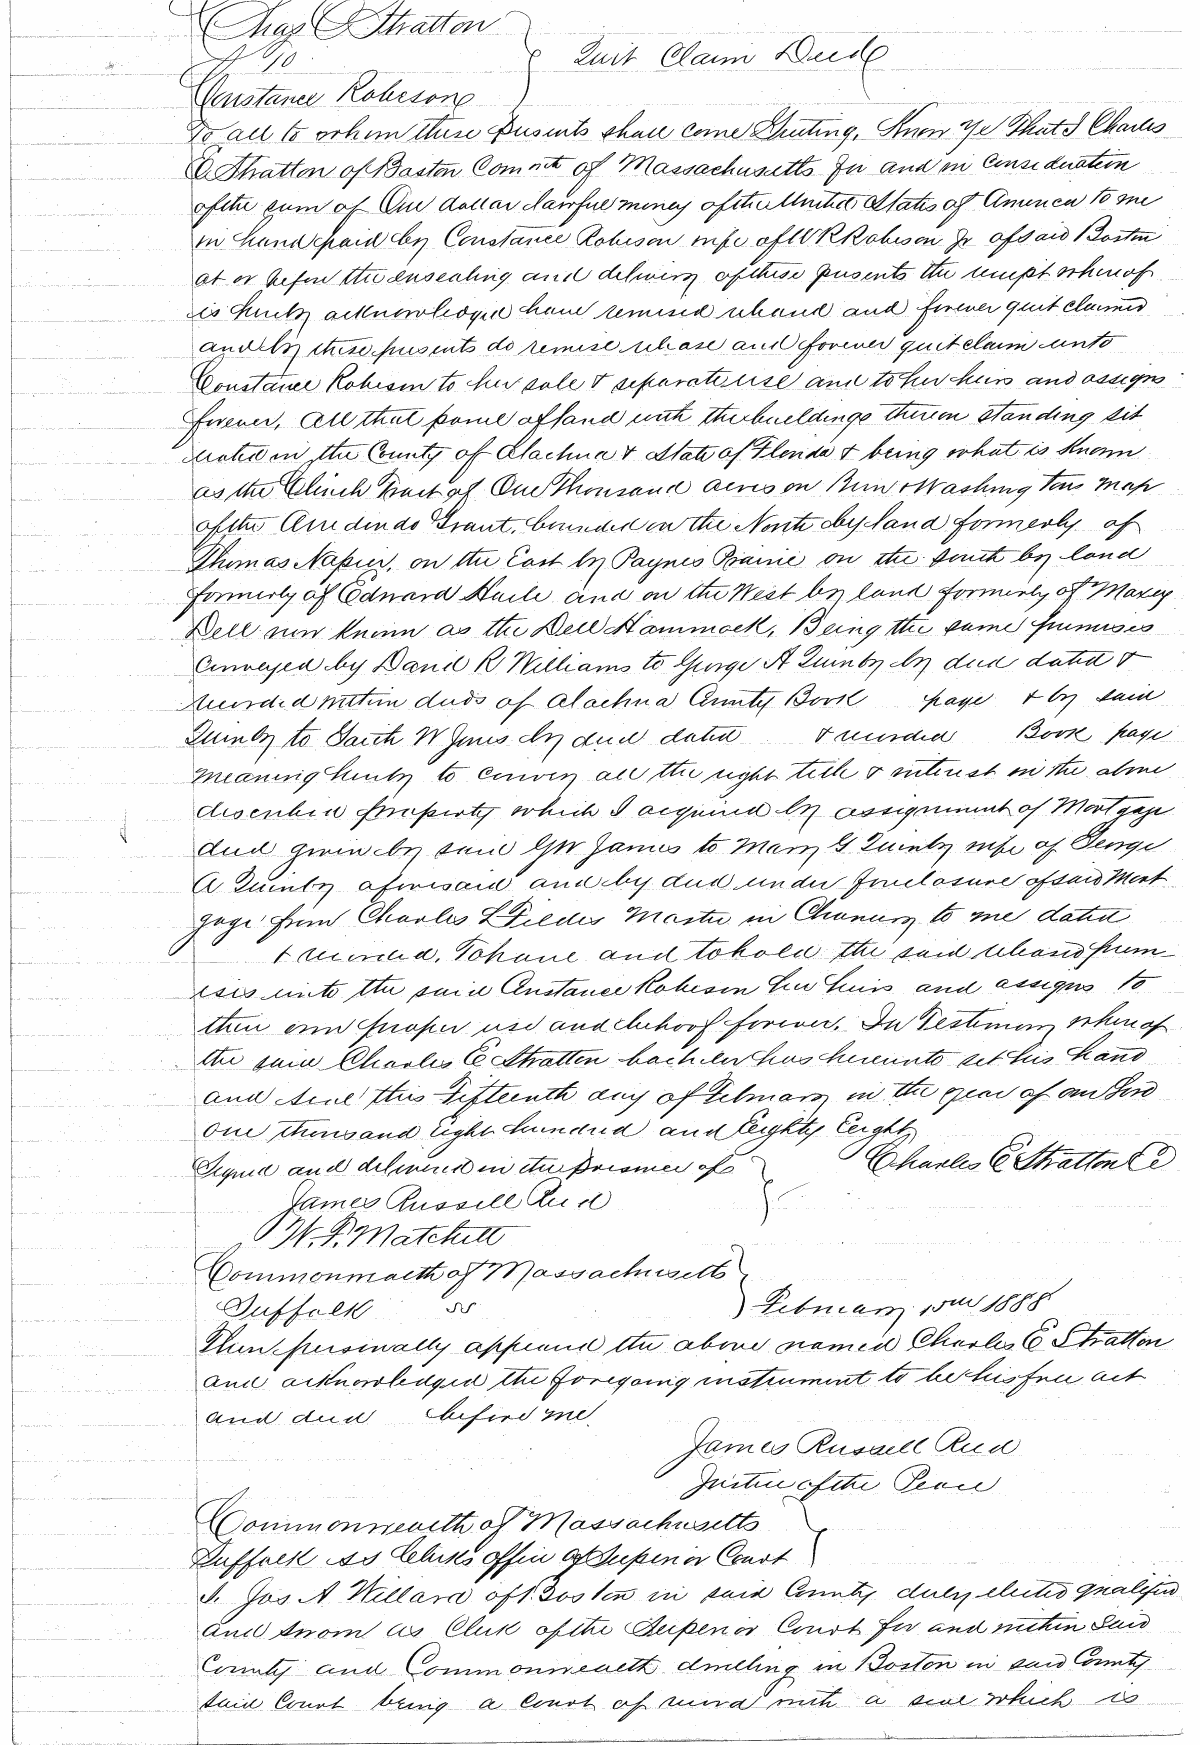 Chas E Stratton
To
Quit Claim Deed
Constance Robeson
To all to whom these presents shall come Greeting, Know Ye That I Charles
E Stratton of Boston Comnth of Massachusetts for and in consideration
of the sum of One dollar lawful money of the United States of America to me
in hand paid by Constance Robeson wife of W R Robeson Jr of said Boston
at or before the ensealing and delivery of these presents the receipt whereof
is hereby acknowledged have remised released and forever quit claimed
and by these presents do remise release and forever quit claim unto
Constance Robeson to her sole & separate use and to her heirs and assigns
forever, All that parcel of land with the buildings thereon standing sit
uated in the County of Alachua & State of Florida & being what is known
as the Clinch Tract of One Thousand acres on Bun & Washingtons map
of the Arredondo Grant, bounded on the North by land formerly of
Thomas Napier, on the East by Paynes Prairie on the South by land
formerly of Edward Haile and on the West by land formerly of Maxey
Dell now known as the Dell Hammock, Being the same premises
conveyed by David R Williams to George A Quinby by deed dated &
recorded within deeds of Alachua County Book page & by said
Quinby to Garth W James by deed dated & recorded Book page
meaning hereby to convey all the right title & interest in the above
described property which I acquired by assignment of Mortgage
deed given by said GW James to Mary G Quinby wife of George
A Quinby aforesaid and by deed under foreclosure of said Mort
gage from Charles L Fildes Master in Chancery to me dated
& recorded. To have and to hold the said released prem
ises unto the said Constance Robeson her heirs and assigns to
their own proper use and behoof forever. In Testimony whereof
the said Charles E Stratton bachelor has hereunto set his hand
and seal this Fifteenth day of February in the year of our Lord
one thousand eight hundred and Eighty Eight
Signed and delivered in the presence of
Charles E Stratton
James Russell Reed
W. P. Matchett
Commonwealth of Massachusetts
Suffolk ss
February 15th 1888
Then personally appeared the above named Charles E Stratton
and acknowledged the foregoing instrument to be his free act
and deed before me
James Russell Reed
Justice of the Peace
Commonwealth of Massachusetts
Suffolk ss Clerks office of Superior Court
I. Jos A Willard of Boston in said County duly elected qualified
and sworn as Clerk of the Superior Court for and within Said
County and Commonwealth dwelling in Boston in said County
said Court being a Court of record with a seal which is